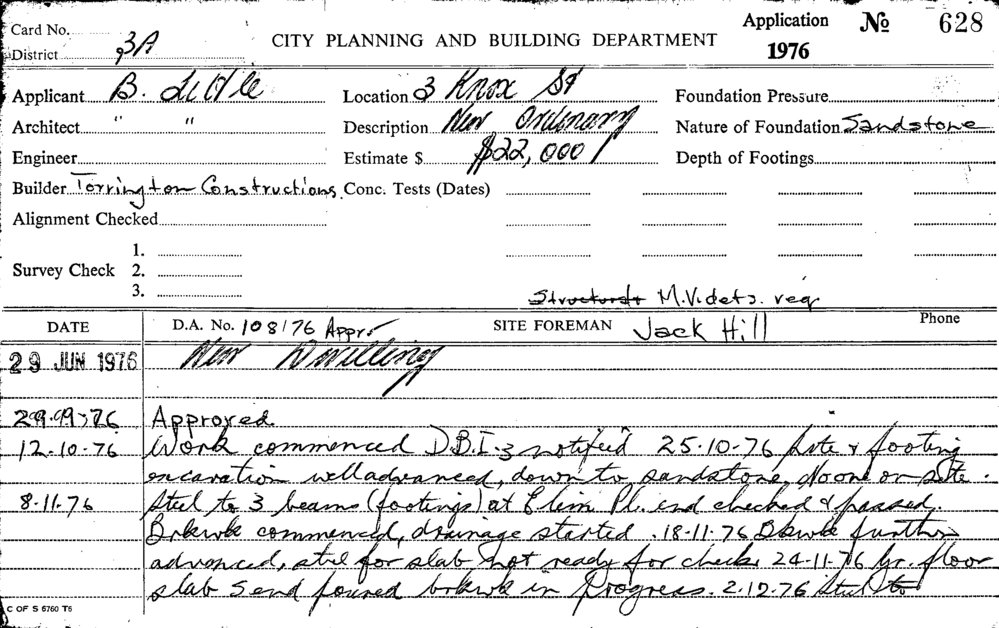 Card No.
District 3A
CITY PLANNING AND BUILDING DEPARTMENT
Application № 628
1976
Applicant B. Little
Location 3 Knox St
Foundation Pressure
Architect " "
Description New Ordinary
Nature of Foundation Sandstone
Engineer
Estimate $ $22,000
Depth of Footings
Builder Torrington Constructions
Conc. Tests (Dates)
Alignment Checked
Survey Check 1.
2.
3.
M.V. dets. req
DATE
D.A. No. 108/76 Appr.
SITE FOREMAN Jack Hill
Phone
29 JUN 1976 New Dwelling
Approved.
12.10.76 Work commenced D.B.I.3 notified 25.10.76 Site & footing
excavation well advanced, down to sandstone, No one on site.
8.11.76 Steel to 3 beams (footings) at Elim Pl. end checked & passed.
Brkwk commenced, drainage started. 18.11.76 Bkwk further
advanced, steel for slab not ready for check. 24.11.76 gr. floor
slab S end poured brkwk in Progress. 2.12.76 Steel to
C OF S 5760 T6